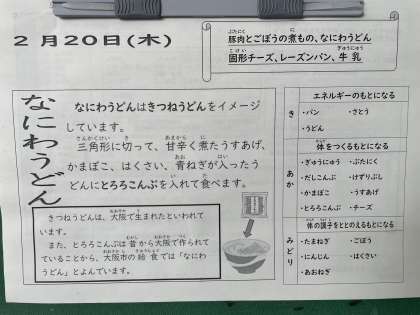 2月20日(木)
豚肉とごぼうの煮もの、なにわうどん
固形チーズ、レーズンパン、牛乳
なにわうどん
なにわうどんはきつねうどんをイメージ
しています。
三角形に切って、甘辛く煮たうすあげ、
かまぼこ、はくさい、青ねぎが入ったう
どんにとろろこんぶを入れて食べます。
きつねうどんは、大阪で生まれたといわれて
います。
また、とろろこんぶは昔から大阪で作られ
ていることから、大阪市の給食では「なにわう
どん」とよんでいます。
エネルギーのもとになる
き
・パン ・さとう
・うどん
体をつくるもとになる
あか
・ぎゅうにゅう ・ぶたにく
・だしこんぶ ・けずりぶし
・かまぼこ ・うすあげ
・とろろこんぶ ・チーズ
体の調子をととのえるもとになる
みどり
・たまねぎ ・ごぼう
・にんじん ・はくさい
・あおねぎ